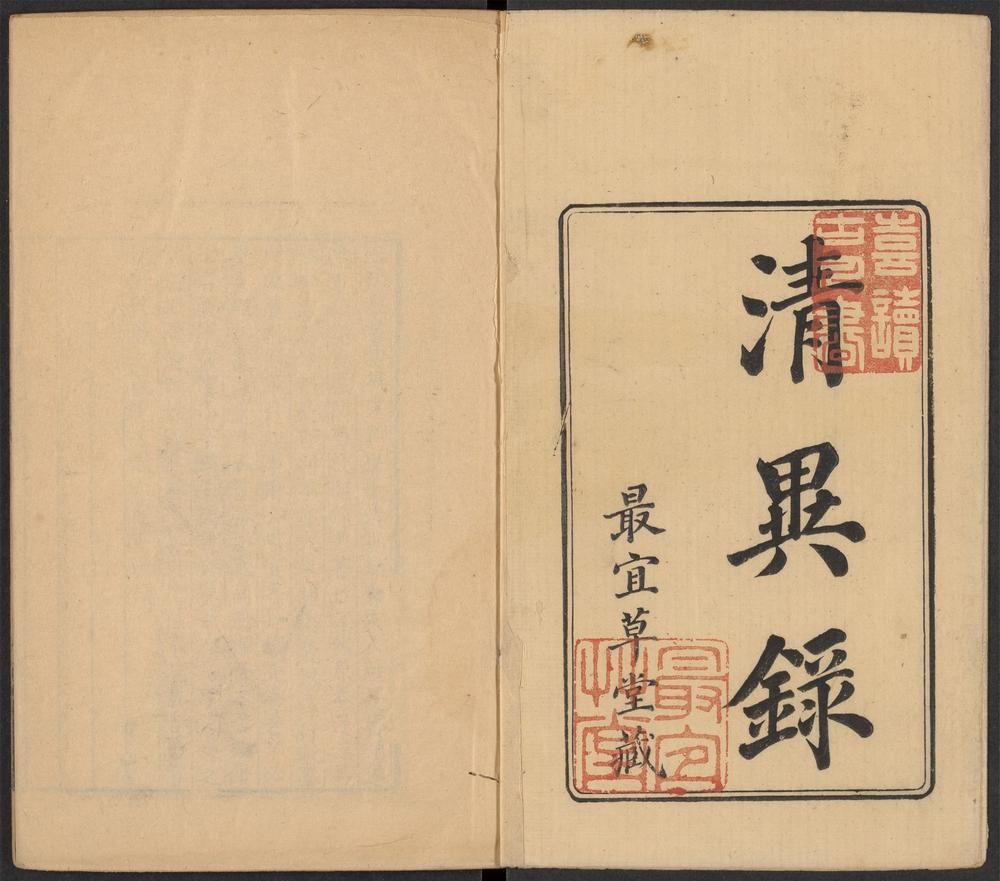 清異錄
最宜草堂藏
喜讀古書
最宜草堂